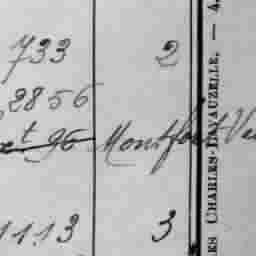 733 2
2856
et 96 Montfort
1113 3
ES CHARLES-LAVAUZELLE. — 4